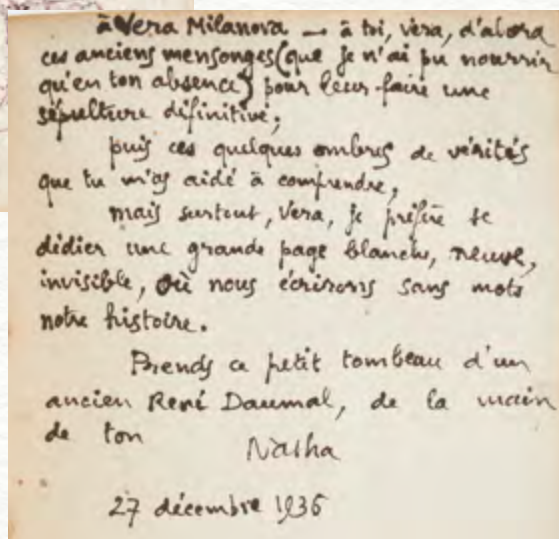 à Vera Milanova — à toi, Vera, d'abord
ces anciens mensonges (que je n'ai pu nourrir
qu'en ton absence) pour leur faire une
sépulture définitive,
puis ces quelques ombres de vérités
que tu m'as aidé à comprendre,
mais surtout, Vera, je préfère te
dédier une grande page blanche, neuve,
invisible, où nous écrirons sans mots
notre histoire.
Prends ce petit tombeau d'un
ancien René Daumal, de la main
de ton
Natha
27 décembre 1936